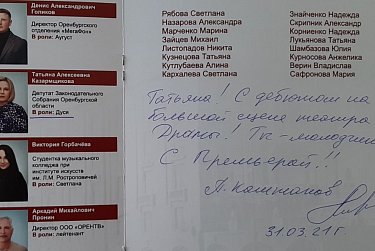 Денис Александрович
Голиков
Директор Оренбургского
отделения «МегаФон»
В роли: Август
Татьяна Алексеевна
Казармщикова
Депутат Законодательного
Собрания Оренбургской
области
В роли: Дуся
Виктория Горбачёва
Студентка музыкального
колледжа при
институте искусств
им. Л.М. Ростроповичей
В роли: Светлана
Аркадий Михайлович
Пронин
Директор ООО «ОРЕНТВ»
В роли: лейтенант
Рябова Светлана
Назарова Александра
Марченко Марина
Зайцев Михаил
Листопадов Никита
Кузнецова Татьяна
Кутлубаева Алина
Кархалева Светлана
Знайченко Надежда
Скрипник Александр
Корниенко Надежда
Лукьянова Татьяна
Шамбазова Юлия
Курносова Анжелика
Верин Владислав
Сафронова Мария
Татьяна! С дебютом на
большой сцене театра
Драмы! Ты - молодчина
С Премьерой!!
31.03.21г.